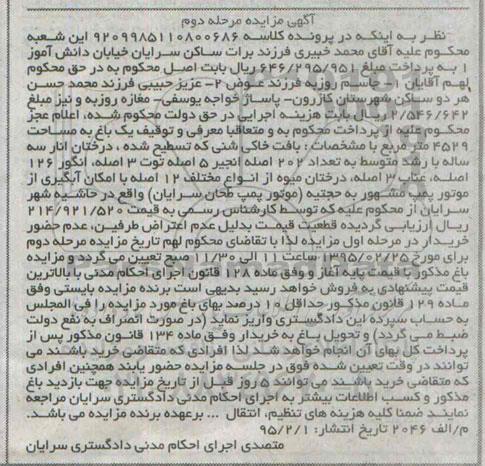 آگهی مزایده مرحله دوم
نظر به اینکه در پرونده کلاسه 9209985110800686 این شعبه
محکوم علیه آقای محمد خبیری فرزند برات ساکن سرایان خیابان دانش آموز
1 به پرداخت مبلغ 646/295/951 ریال بابت اصل محکوم به در حق محکوم
لهم آقایان 1- جاسم روزبه فرزند عوض 2- عزیز حبیبی فرزند محمد حسن
هر دو ساکن شهرستان کازرون- پاساژ خواجه یوسفی- مغازه روزبه و نیز مبلغ
2/546/642 ریال بابت هزینه اجرایی در حق دولت محکوم شده، اعلام عجز
محکوم علیه از پرداخت محکوم به و متعاقبا معرفی و توقیف یک باغ به مساحت
4529 متر مربع با مشخصات : بافت خاک شنی که تسطیح شده ، درختان انار سه
ساله با رشد متوسط به تعداد 202 اصله انجیر 5 اصله توت 3 اصله، انگور 126
اصله، عناب 3 اصله، درختان میوه از انواع مختلف 12 اصله با امکان آبگیری از
موتور پمپ مشهور به حجتیه (موتور پمپ طحان سرایان) واقع در حاشیه شهر
سرایان از محکوم علیه که توسط کارشناس رسمی به قیمت 214/921/520
ریال ارزیابی گردیده قطعیت قیمت بدلیل عدم اعتراض طرفین، عدم حضور
خریدار در مرحله اول مزایده لذا با تقاضای محکوم لهم تاریخ مزایده مرحله دوم
برای مورخ 1395/02/25 ساعت 11 الی 11/30 صبح تعیین می گردد و مزایده
باغ مذکور با قیمت پایه آغاز و وفق ماده 128 قانون اجرای احکام مدنی با بالاترین
قیمت پیشنهادی به فروش خواهد رسید بدیهی است برنده مزایده بایستی وفق
ماده 129 قانون مذکور حداقل 10 درصد بهای باغ مورد مزایده را فی المجلس
به حساب سپرده این دادگستری واریز نماید (در صورت انصراف به نفع دولت
ضبط می گردد) و تحویل باغ به خریدار وفق ماده 134 قانون مذکور پس از
پرداخت کل بهای آن انجام خواهد شد لذا افرادی که متقاضی خرید باشند می
توانند در وقت تعیین شده فوق در جلسه مزایده حضور یابند همچنین افرادی
که متقاضی خرید باشند می توانند 5 روز قبل از تاریخ مزایده جهت بازدید باغ
مذکور و کسب اطلاعات بیشتر به اجرای احکام مدنی دادگستری سرایان مراجعه
نمایند ضمنا کلیه هزینه های تنظیم، انتقال ... برعهده برنده مزایده می باشد.
م/الف 2046 تاریخ انتشار: 95/2/1
متصدی اجرای احکام مدنی دادگستری سرایان